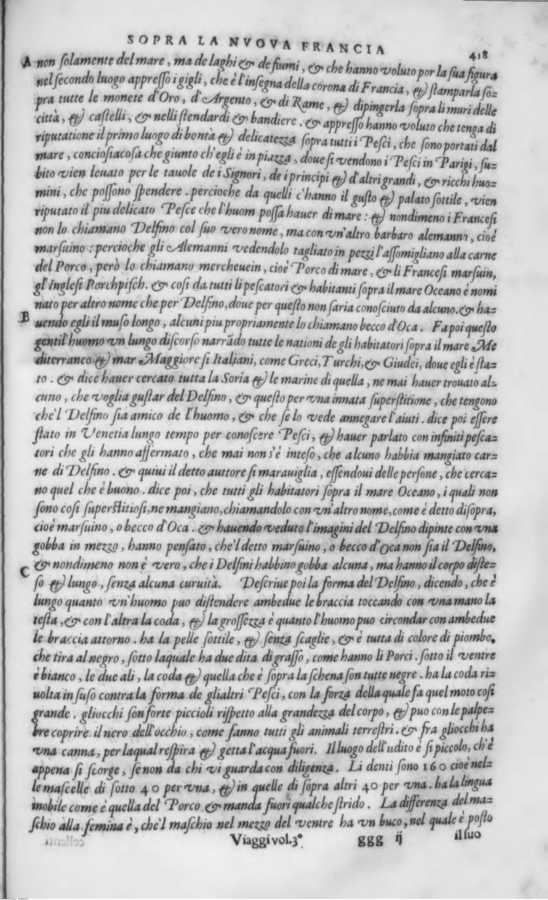 SOPRA LA NVOVA FRANCIA
418
A non solamente del mare, ma de laghi & de fiumi, & che hanno voluto por la sua figura
nel secondo luogo appresso i gigli, che è l'insegna della corona di Francia, & stamparla so-
pra tutte le monete d'Oro, d'Argento, & di Rame, & dipingerla sopra li muri delle
città, & castelli, & nelli stendardi & bandiere. & appresso hanno voluto che tenga di
riputatione il primo luogo di bontà & delicatezza sopra tutti i Pesci, che sono portati dal
mare, conciosiacosa che giunto ch'egli è in piazza, doue si vendono i Pesci in Parigi, su-
bito vien leuato per le tauole de i Signori, de i principi & d'altri grandi, & ricchi huo-
mini, che possono spendere. percioche da quelli c'hanno il gusto & palato sottile, vien
riputato il piu delicato Pesce che l'huom possa hauer di mare: & nondimeno i Francesi
non lo chiamano Delfino col suo vero nome, ma con vn'altro barbaro alemanno, cioè
marsuino: percioche gli Alemanni vedendolo tagliato in pezzi l'assomigliano alla carne
del Porco, però lo chiamano mercheuein, cioè Porco di mare, & li Francesi marsuin,
gl'Inglesi Porchpisch. & cosi da tutti li pescatori & habitanti sopra il mare Oceano è nomi
nato per altro nome che per Delfino, doue per questo non saria conosciuto da alcuno. & ha-
B uendo egli il muso longo, alcuni piu propriamente lo chiamano becco d'Oca. Fa poi questo
gentil'huomo vn lungo discorso narrādo tutte le nationi de gli habitatori sopra il mare Me
diterraneo & mar Maggiore si Italiani, come Greci, Turchi, & Giudei, doue egli è sta-
to. & dice hauer cercato tutta la Soria & le marine di quella, ne mai hauer trouato al-
cuno, che voglia gustar del Delfino, & questo per vna innata superstitione, che tengono
che'l Delfino sia amico de l'huomo, & che se lo vede annegare l'aiuti. dice poi essere
stato in Venetia lungo tempo per conoscere Pesci, & hauer parlato con infiniti pesca-
tori che gli hanno affermato, che mai non s'è inteso, che alcuno habbia mangiato car-
ne di Delfino. & quiui il detto auttore si marauiglia, essendoui delle persone, che cerca-
no quel che è buono. dice poi, che tutti gli habitatori sopra il mare Oceano, i quali non
sono cosi superstitiosi, ne mangiano, chiamandolo con vn'altro nome, come è detto disopra,
cioè marsuino, o becco d'Oca. & hauendo veduto l'imagini del Delfino dipinte con vna
gobba in mezzo, hanno pensato, che'l detto marsuino, o becco d'Oca non sia il Delfino,
& nondimeno non è vero, che i Delfini habbino gobba alcuna, ma hanno il corpo diste-
C so & lungo, senza alcuna curuità. Descriue poi la forma del Delfino, dicendo, che è
lungo quanto vn'huomo puo distendere ambedue le braccia toccando con vna mano la
testa, & con l'altra la coda, & la grossezza è quanto l'huomo puo circondar con ambedue
le braccia attorno. ha la pelle sottile, & senza scaglie, & è tutta di colore di piombo,
che tira al negro, sotto laquale ha due dita di grasso, come hanno li Porci. sotto il ventre
è bianco, le due ali, la coda & quella che è sopra la schena son tutte negre. ha la coda ri-
uolta in suso contra la forma de gli altri Pesci, con la forza della quale fa quel moto cosi
grande. gliocchi son forte piccioli rispetto alla grandezza del corpo, & puo con le palpe-
bre coprire il nero dell'occhio, come fanno tutti gli animali terrestri. & fra gliocchi ha
vna canna, per laqual respira & getta l'acqua fuori. Il luogo dell'udito è si piccolo, ch'è
appena si scorge, se non da chi vi guarda con diligenza. Li denti sono 160 cioè nel-
le mascelle di sotto 40 per vna, & in quelle di sopra altri 40 per vna. ha la lingua
mobile come è quella del Porco & manda fuori qualche strido. La differenza del ma-
schio alla femina è, che'l maschio nel mezzo del ventre ha vn buco, nel quale è posto
Viaggi vol. 3°
ggg ij
il suo